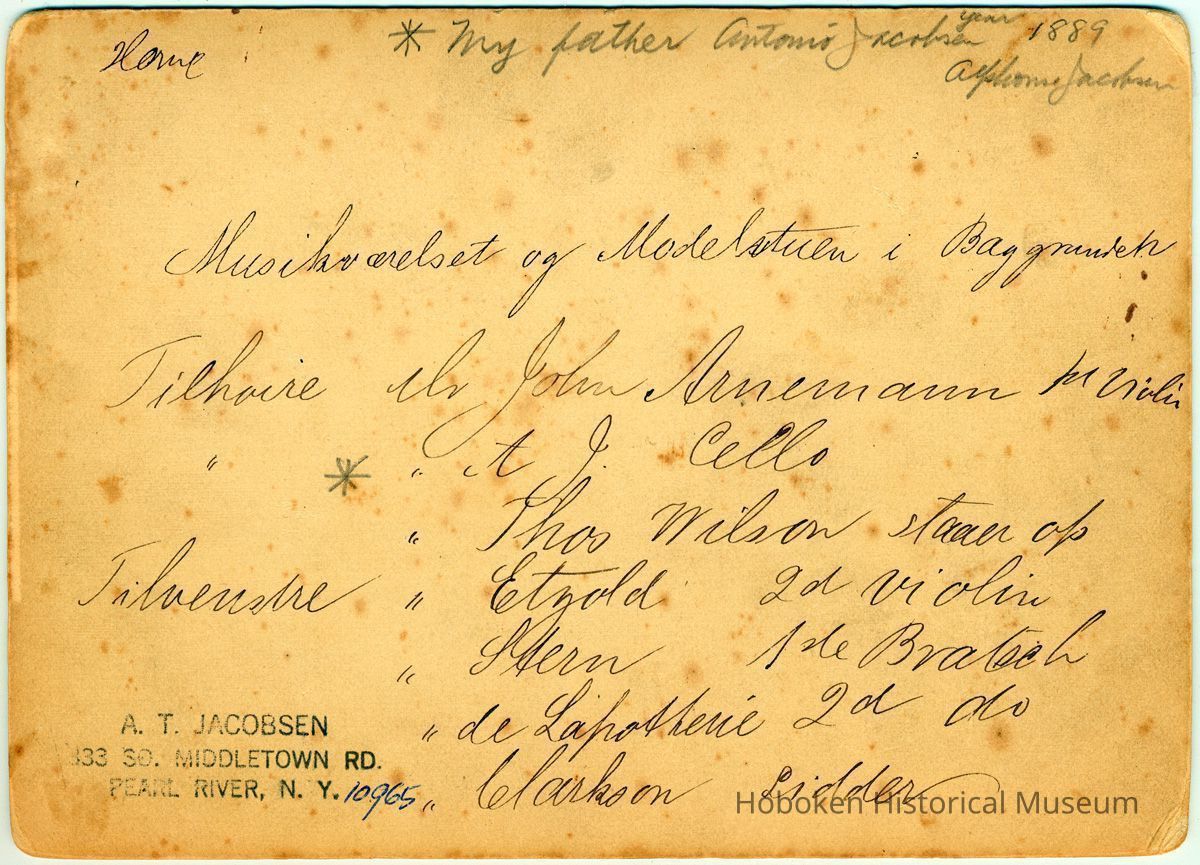 Home
* My father Antonio Jacobsen year 1889
Alphonse Jacobsen
Musikværelset og Modelstuen i Baggrunden
Tilhoire Mr John Arnemann 1st Violin
" * " A J. Cello
" Thos Wilson staaer op
Tilvenstre " Etzold 2d violin
" Stern 1de Bratsch
A. T. JACOBSEN " de Lapotterie 2d do
333 SO. MIDDLETOWN RD.
PEARL RIVER, N. Y. 10965 " Clarkson Sidder
Hoboken Historical Museum